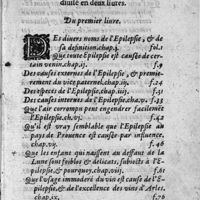 diuisé en deux liures.
Du premier liure.
DEs diuers noms de l'Epilepsie, & de
sa definition, chap.j. fol.1
Que toute Epilepsie est causée de cer-
tain venin, chap.ij. f.9
Des causes externes de l'Epilepsie, & premie-
rement du vice paternel, chap.iij.
Des especes de l'Epilepsie, chap.iiij. f.31
Des causes internes de l'Epilepsie, cha.v. f.33
Que l'air corrompu peut engendrer facilement
l'Epilepsie, ch.vj. f.42
Qu'il est vray semblable que l'Epilepsie au
pays de Prouence est causée par influence,
chap.vij. f.46
Que les enfans qui naissent au deffaut de la
Lune sont foibles & delicats, subiects à l'E-
pilepsie, & pourquoy, chap.viij. f.61
Que l'vsage immoderé du vin est cause de l'E-
pilepsie, & de l'excellence des vins d'Arles,
chap.ix. f.76